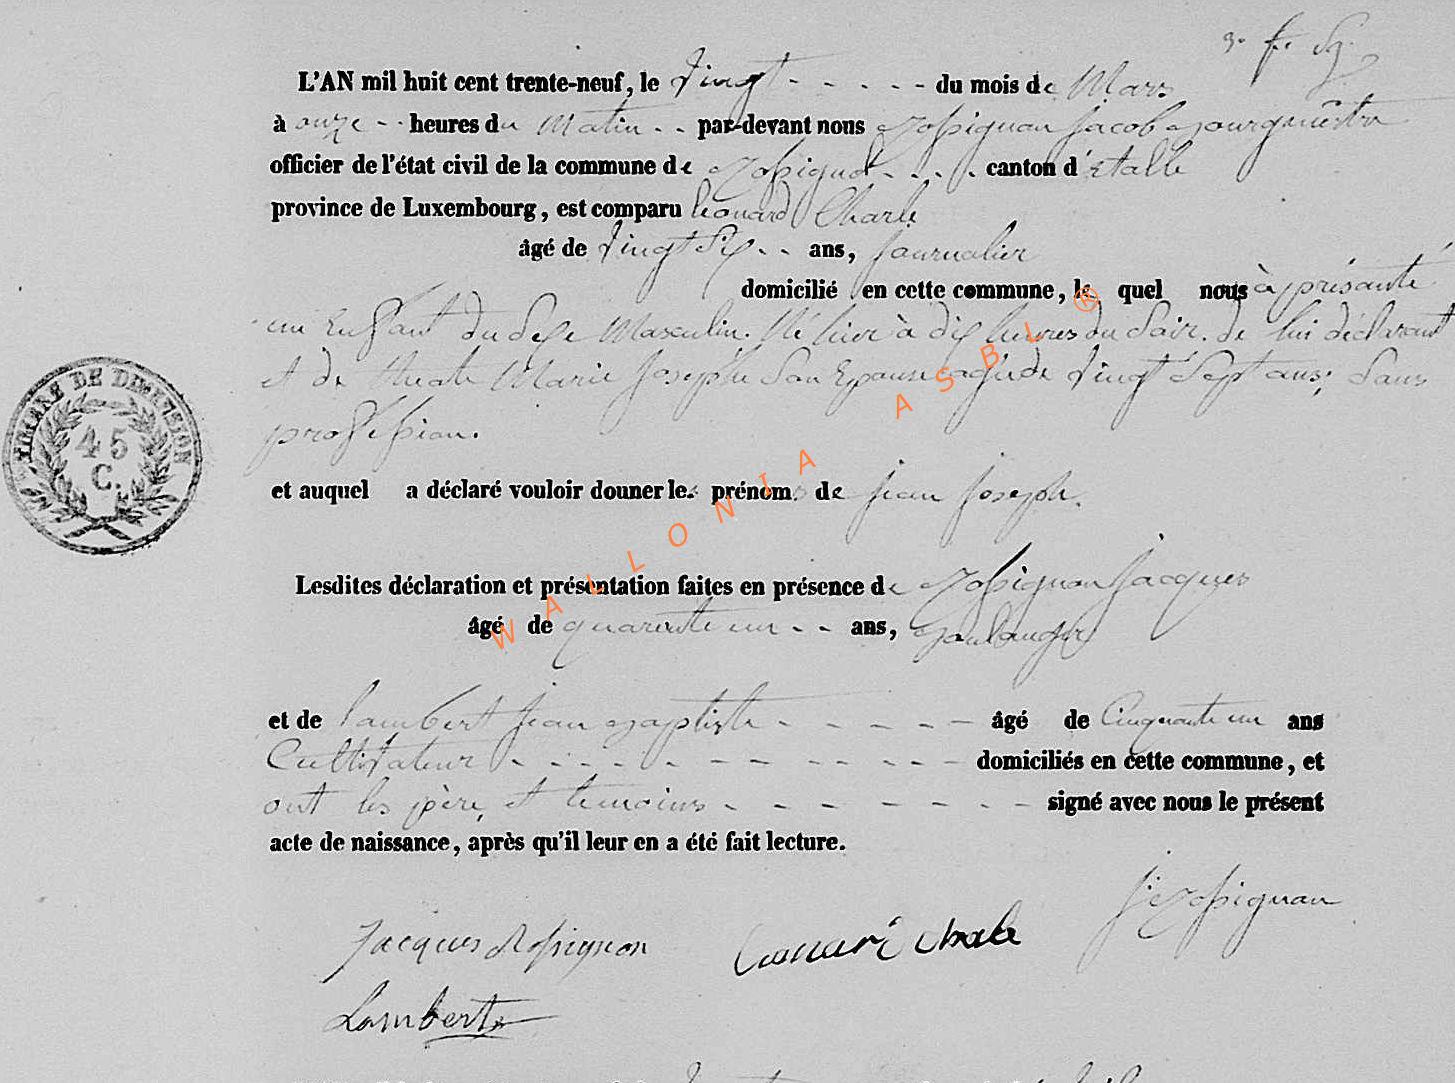 3. f. 59.
L'AN mil huit cent trente-neuf, le Vingt - - - - - du mois de Mars
à onze - - heures du Matin - - par-devant nous Rossignon Jacob Bourgmestre
officier de l'état civil de la commune de Rossignol - - - . canton d'Etalle
province de Luxembourg, est comparu Léonard Charle
âgé de Vingt Six - - ans, journalier
domicilié en cette commune, le quel nous à présanté
un Enfant du Sexe Masculin. Né hier à dix heures du Soir. de lui déclarant
et de Marie Josephe Son Epouse agée de Vingt Sept ans, Sans
profession.
et auquel a déclaré vouloir donner les prénoms de jean joseph.
Lesdites déclaration et présentation faites en présence de Rossignon Jacques
âgé de quarente un - - ans, Boulanger
et de Lambert jean Baptiste - - - - - âgé de Cinquante un ans
Cultivateur - - - - - - - - - - - domiciliés en cette commune, et
ont les père, et temoins - - - - - - - - signé avec nous le présent
acte de naissance, après qu'il leur en a été fait lecture.
J Rossignon
Jacques Rossignon
Lambert
TIMBRE DE DIMENSION
45
C.
WALLONIA ASBL ®